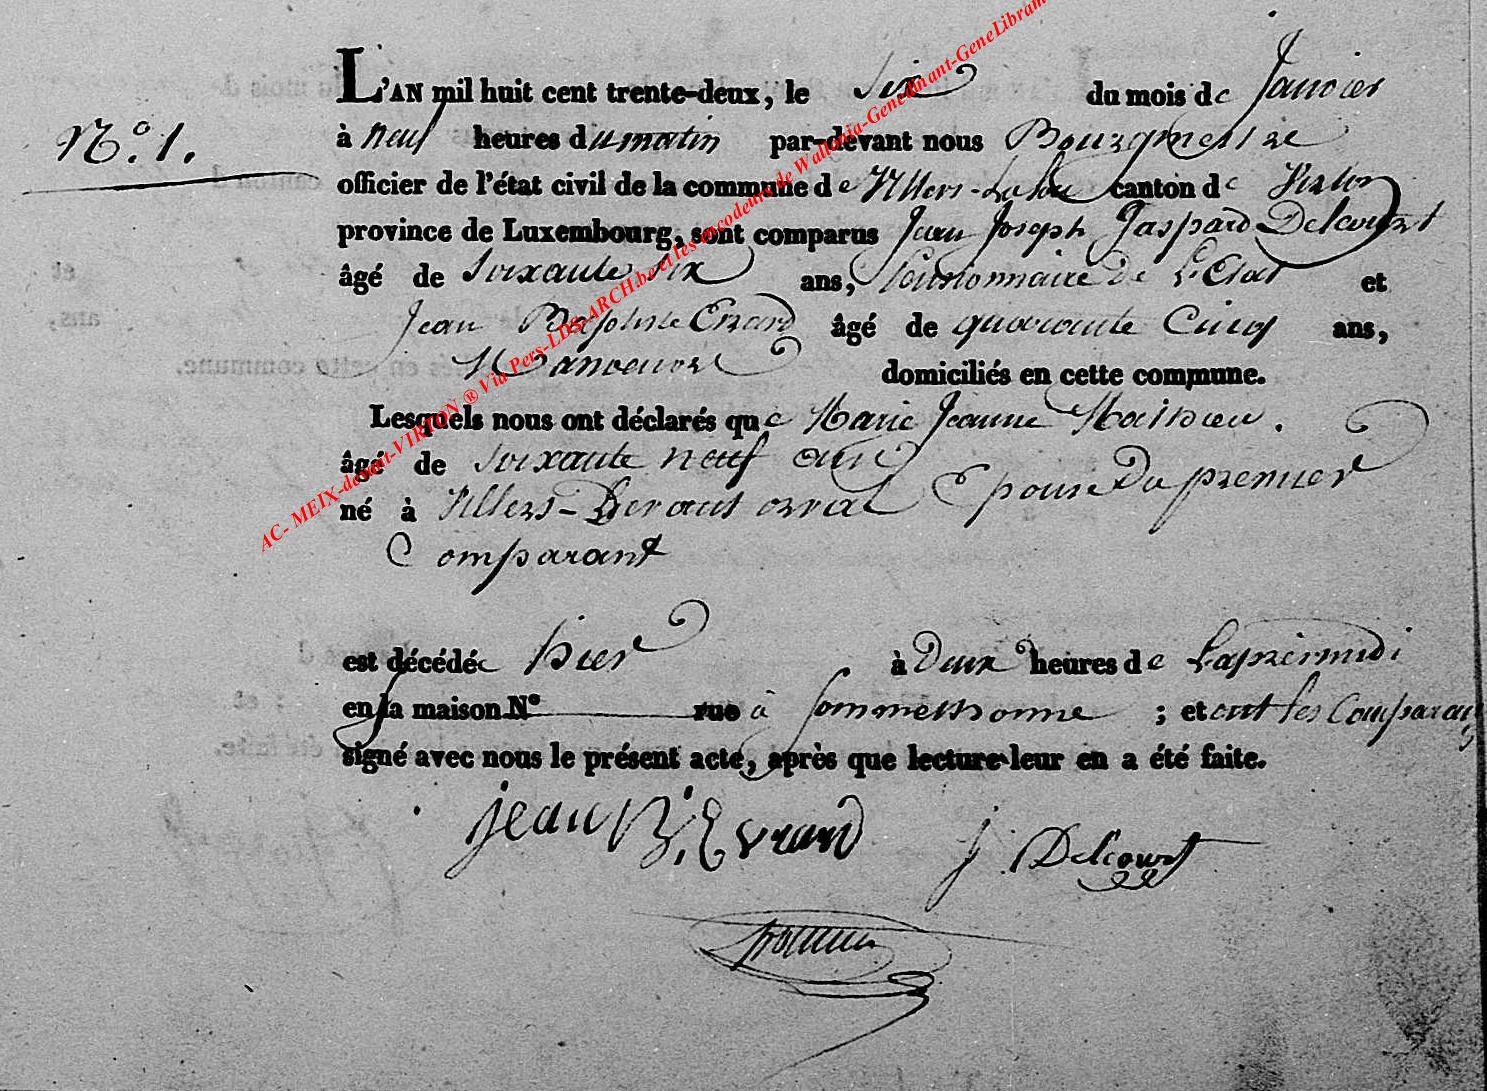 L'AN mil huit cent trente-deux, le Six du mois de Janvier
N.° 1. à neuf heures du matin par-devant nous Bourgmestre
officier de l'état civil de la commune de Villers-Laloue canton de Virton
province de Luxembourg, sont comparus Jean Joseph Gaspard Delcourt
âgé de Soixante Six ans, Pensionnaire de L'Etat et
Jean Baptiste Evrard âgé de quarante Cinq ans,
Manoeuvre domiciliés en cette commune.
Lesquels nous ont déclarés que Marie Jeanne Mathieu.
âgé de Soixante neuf ans
né à Villers-Devant orval Epouse Du premier
Comparant
est décédée hier à Deux heures de L'aprèsmidi
en la maison N° rue à Sommethonne ; et ont les Comparans
signé avec nous le présent acte, après que lecture leur en a été faite.
Jean B. Evrard J. Delcourt
AC- MEIX-devant-VIRTON ® Via Pers-LDS-ARCH.be et les encodeurs de Wallonia-Geneamant-GeneLibram